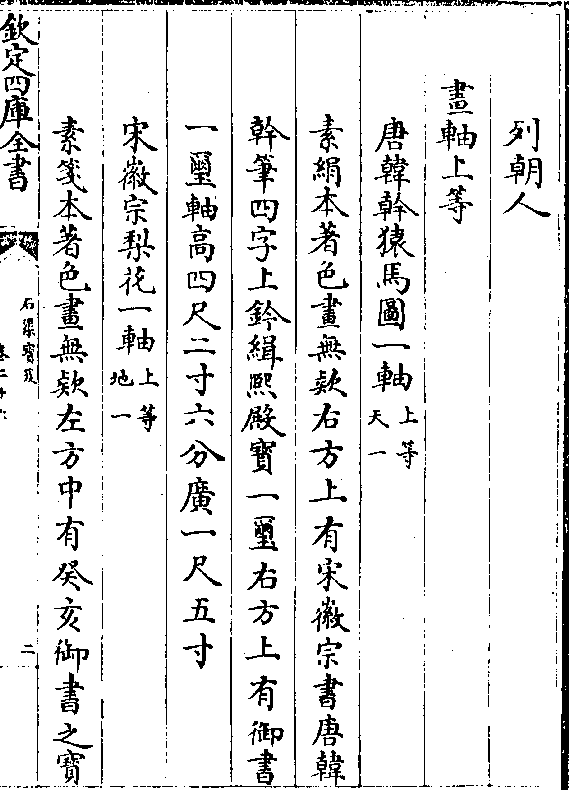 列朝人
畫軸上等
唐韓幹猿馬圖一軸上等天一
素絹本著色畫無款右方上有宋徽宗書唐韓
幹筆四字上鈐緝熙殿寶一璽右方上有御書
一璽軸高四尺二寸六分廣一尺五寸
宋徽宗梨花一軸上等地一
素箋本著色畫無款左方中有癸亥御書之寶
欽定四庫全書
石渠寶笈
二